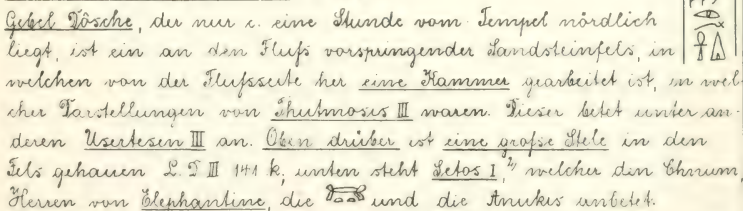 Gebel Dôsche, der nur c. eine Stunde vom Tempel nördlich
liegt, ist ein an den Fluſs vorspringender Sandsteinfels, in
welchen von der Fluſsseite her eine Kammer gearbeitet ist, in wel-
cher Darstellungen von Thutmosis III waren. Dieser betet unter an-
deren Usertesen III an. Oben drüber ist eine groſse Stele in den
Fels gehauen L. D III 141 k, unten steht Setos I, 2) welcher den Chnum,
Herren von Elephantine, die und die Anukis anbetet.